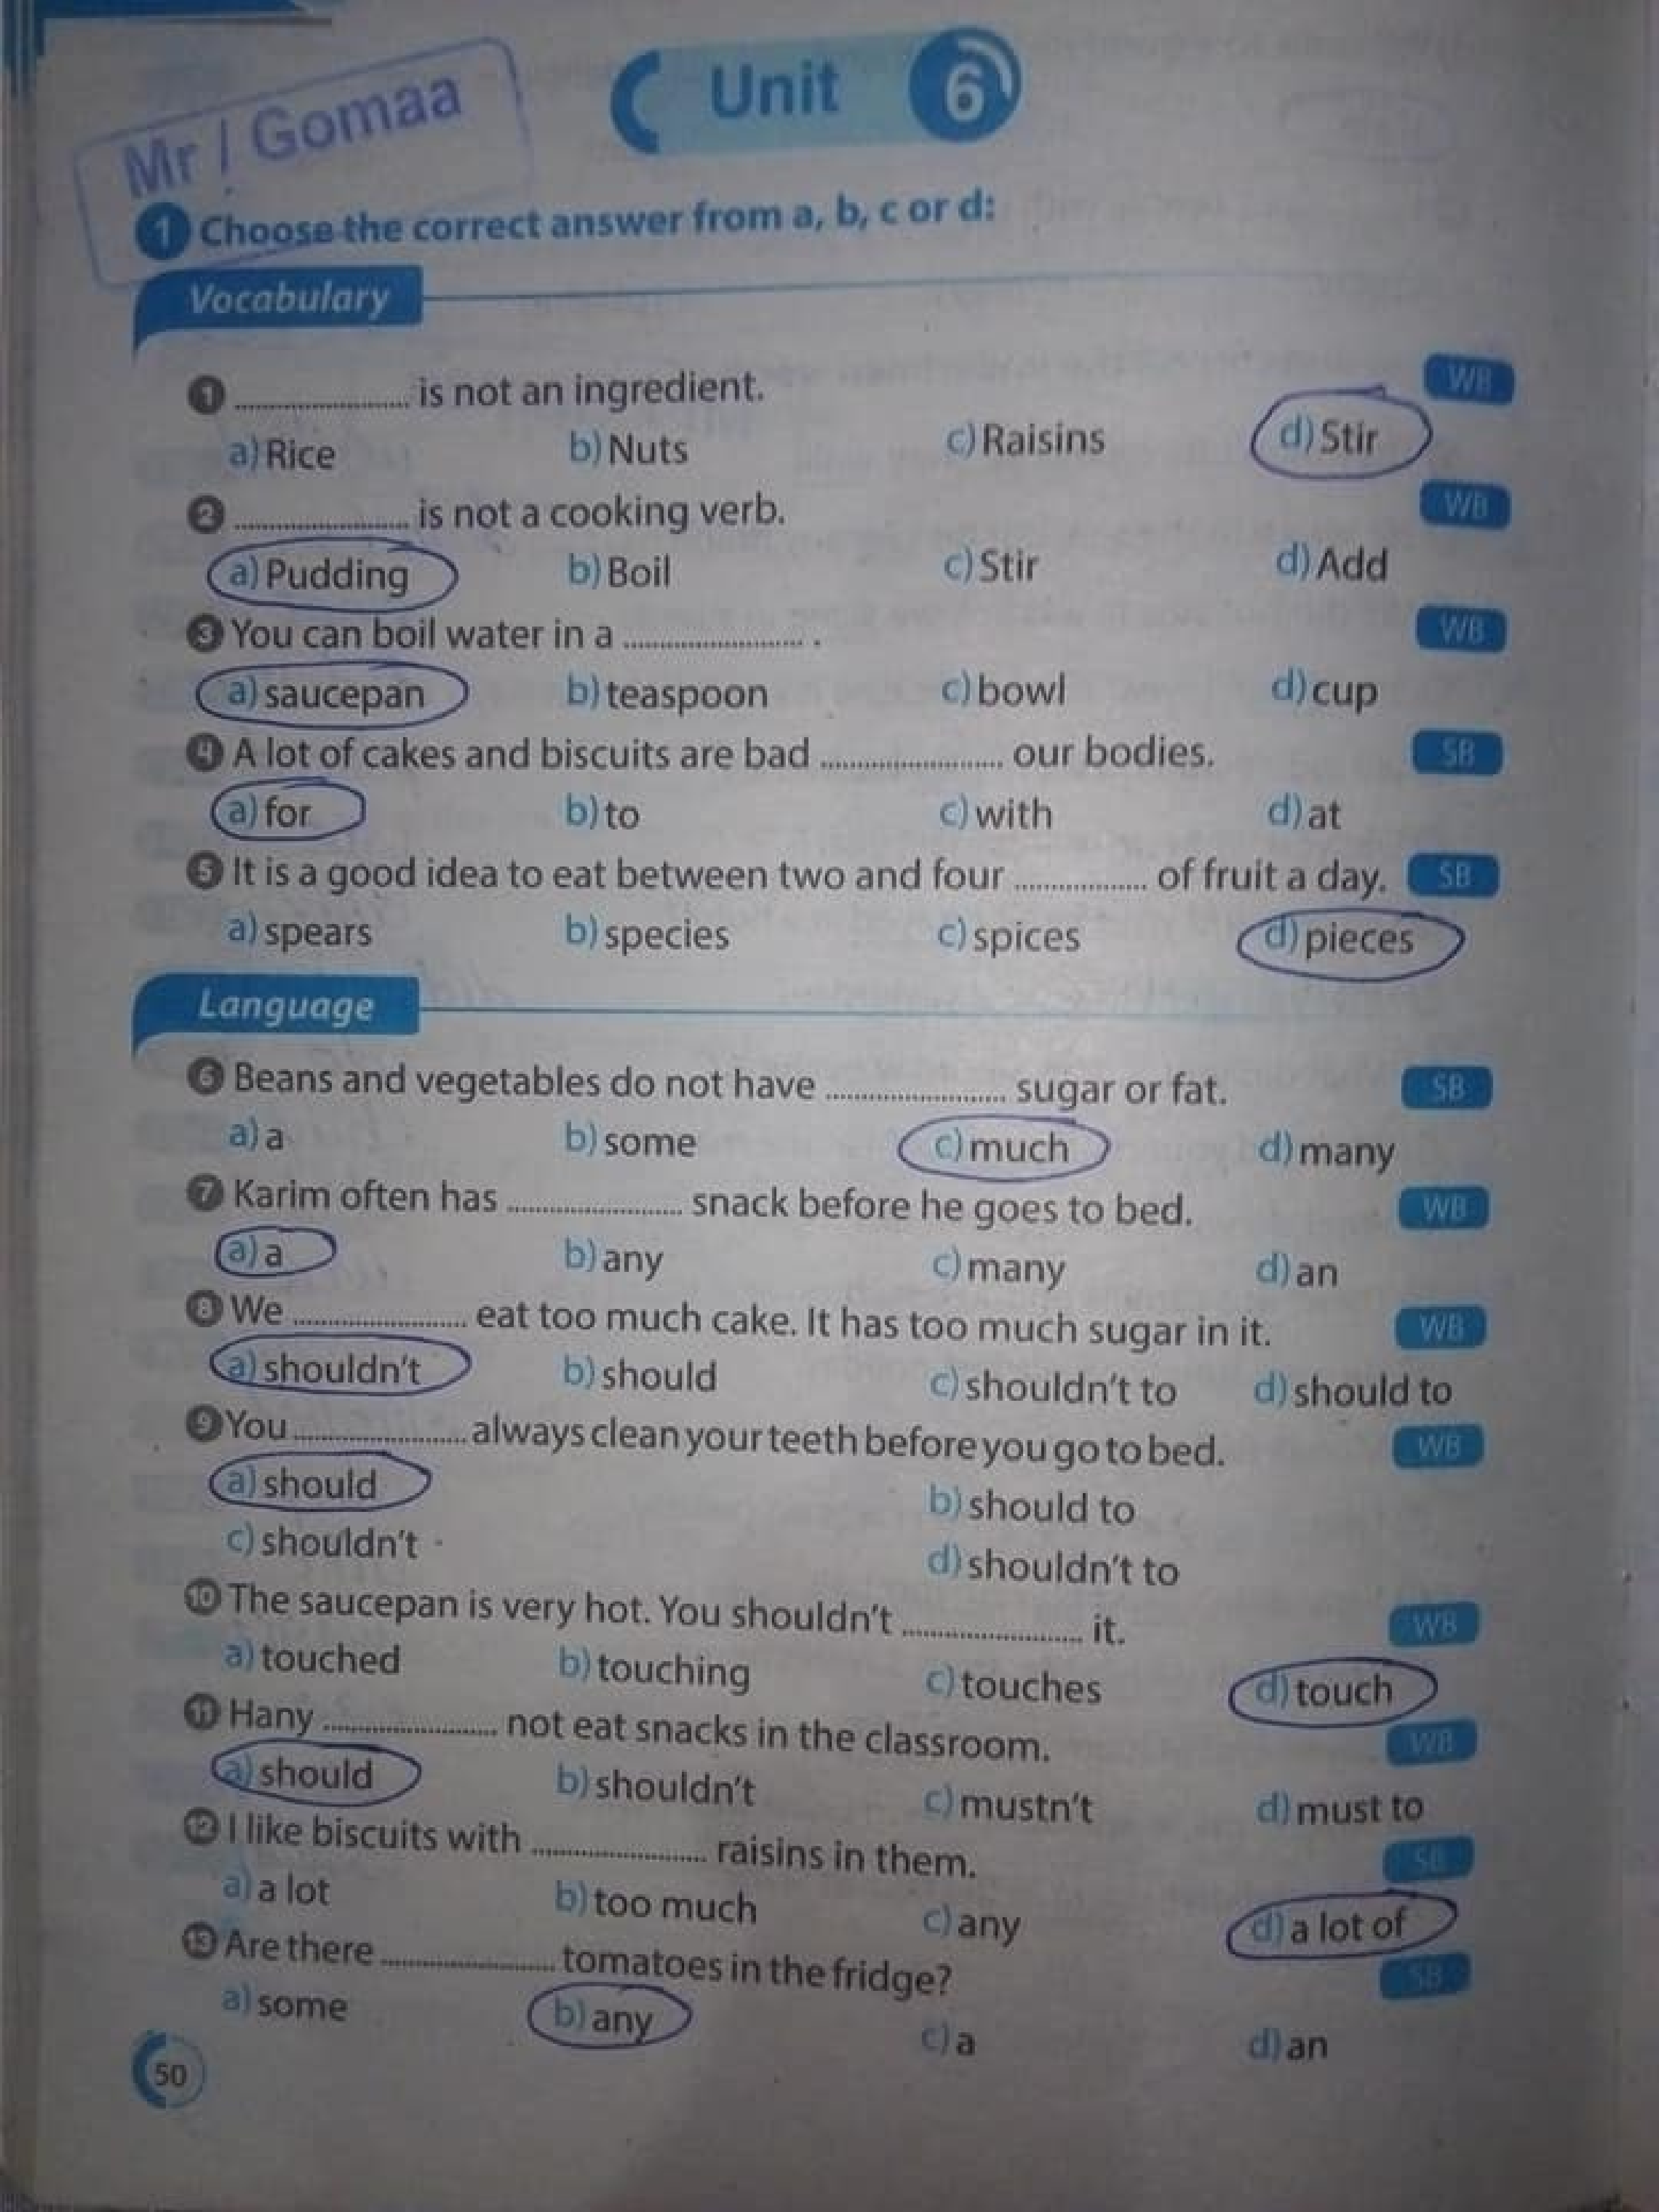 Mr / Gomaa
Unit 6
1 Choose the correct answer from a, b, c or d:
Vocabulary
1 ........................ is not an ingredient. WB
a) Rice b) Nuts c) Raisins d) Stir
2 ........................ is not a cooking verb. WB
a) Pudding b) Boil c) Stir d) Add
3 You can boil water in a ........................ . WB
a) saucepan b) teaspoon c) bowl d) cup
4 A lot of cakes and biscuits are bad ........................ our bodies. SB
a) for b) to c) with d) at
5 It is a good idea to eat between two and four .................. of fruit a day. SB
a) spears b) species c) spices d) pieces
Language
6 Beans and vegetables do not have ........................ sugar or fat. SB
a) a b) some c) much d) many
7 Karim often has ........................ snack before he goes to bed. WB
a) a b) any c) many d) an
8 We ........................ eat too much cake. It has too much sugar in it. WB
a) shouldn't b) should c) shouldn't to d) should to
9 You ........................ always clean your teeth before you go to bed. WB
a) should b) should to
c) shouldn't d) shouldn't to
10 The saucepan is very hot. You shouldn't ........................ it. WB
a) touched b) touching c) touches d) touch
11 Hany ........................ not eat snacks in the classroom. WB
a) should b) shouldn't c) mustn't d) must to
12 I like biscuits with ........................ raisins in them. SB
a) a lot b) too much c) any d) a lot of
13 Are there ........................ tomatoes in the fridge? SB
a) some b) any c) a d) an
50